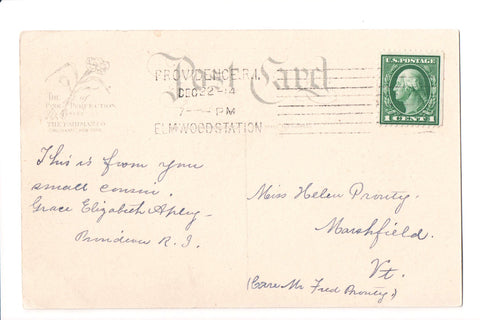 Post Card
THE
PINK OF PERFECTION
THE FAIRMAN CO
PROVIDENCE, R.I.
DEC 22 - 14
7 - PM
ELMWOOD STATION
U.S. POSTAGE
1 CENT 1
This is from you
small cousin.
Grace Elizabeth Apley -
Providence R. I.
Miss Helen Prouty.
Marshfield.
Vt.
(Care Mr Fred Prouty)